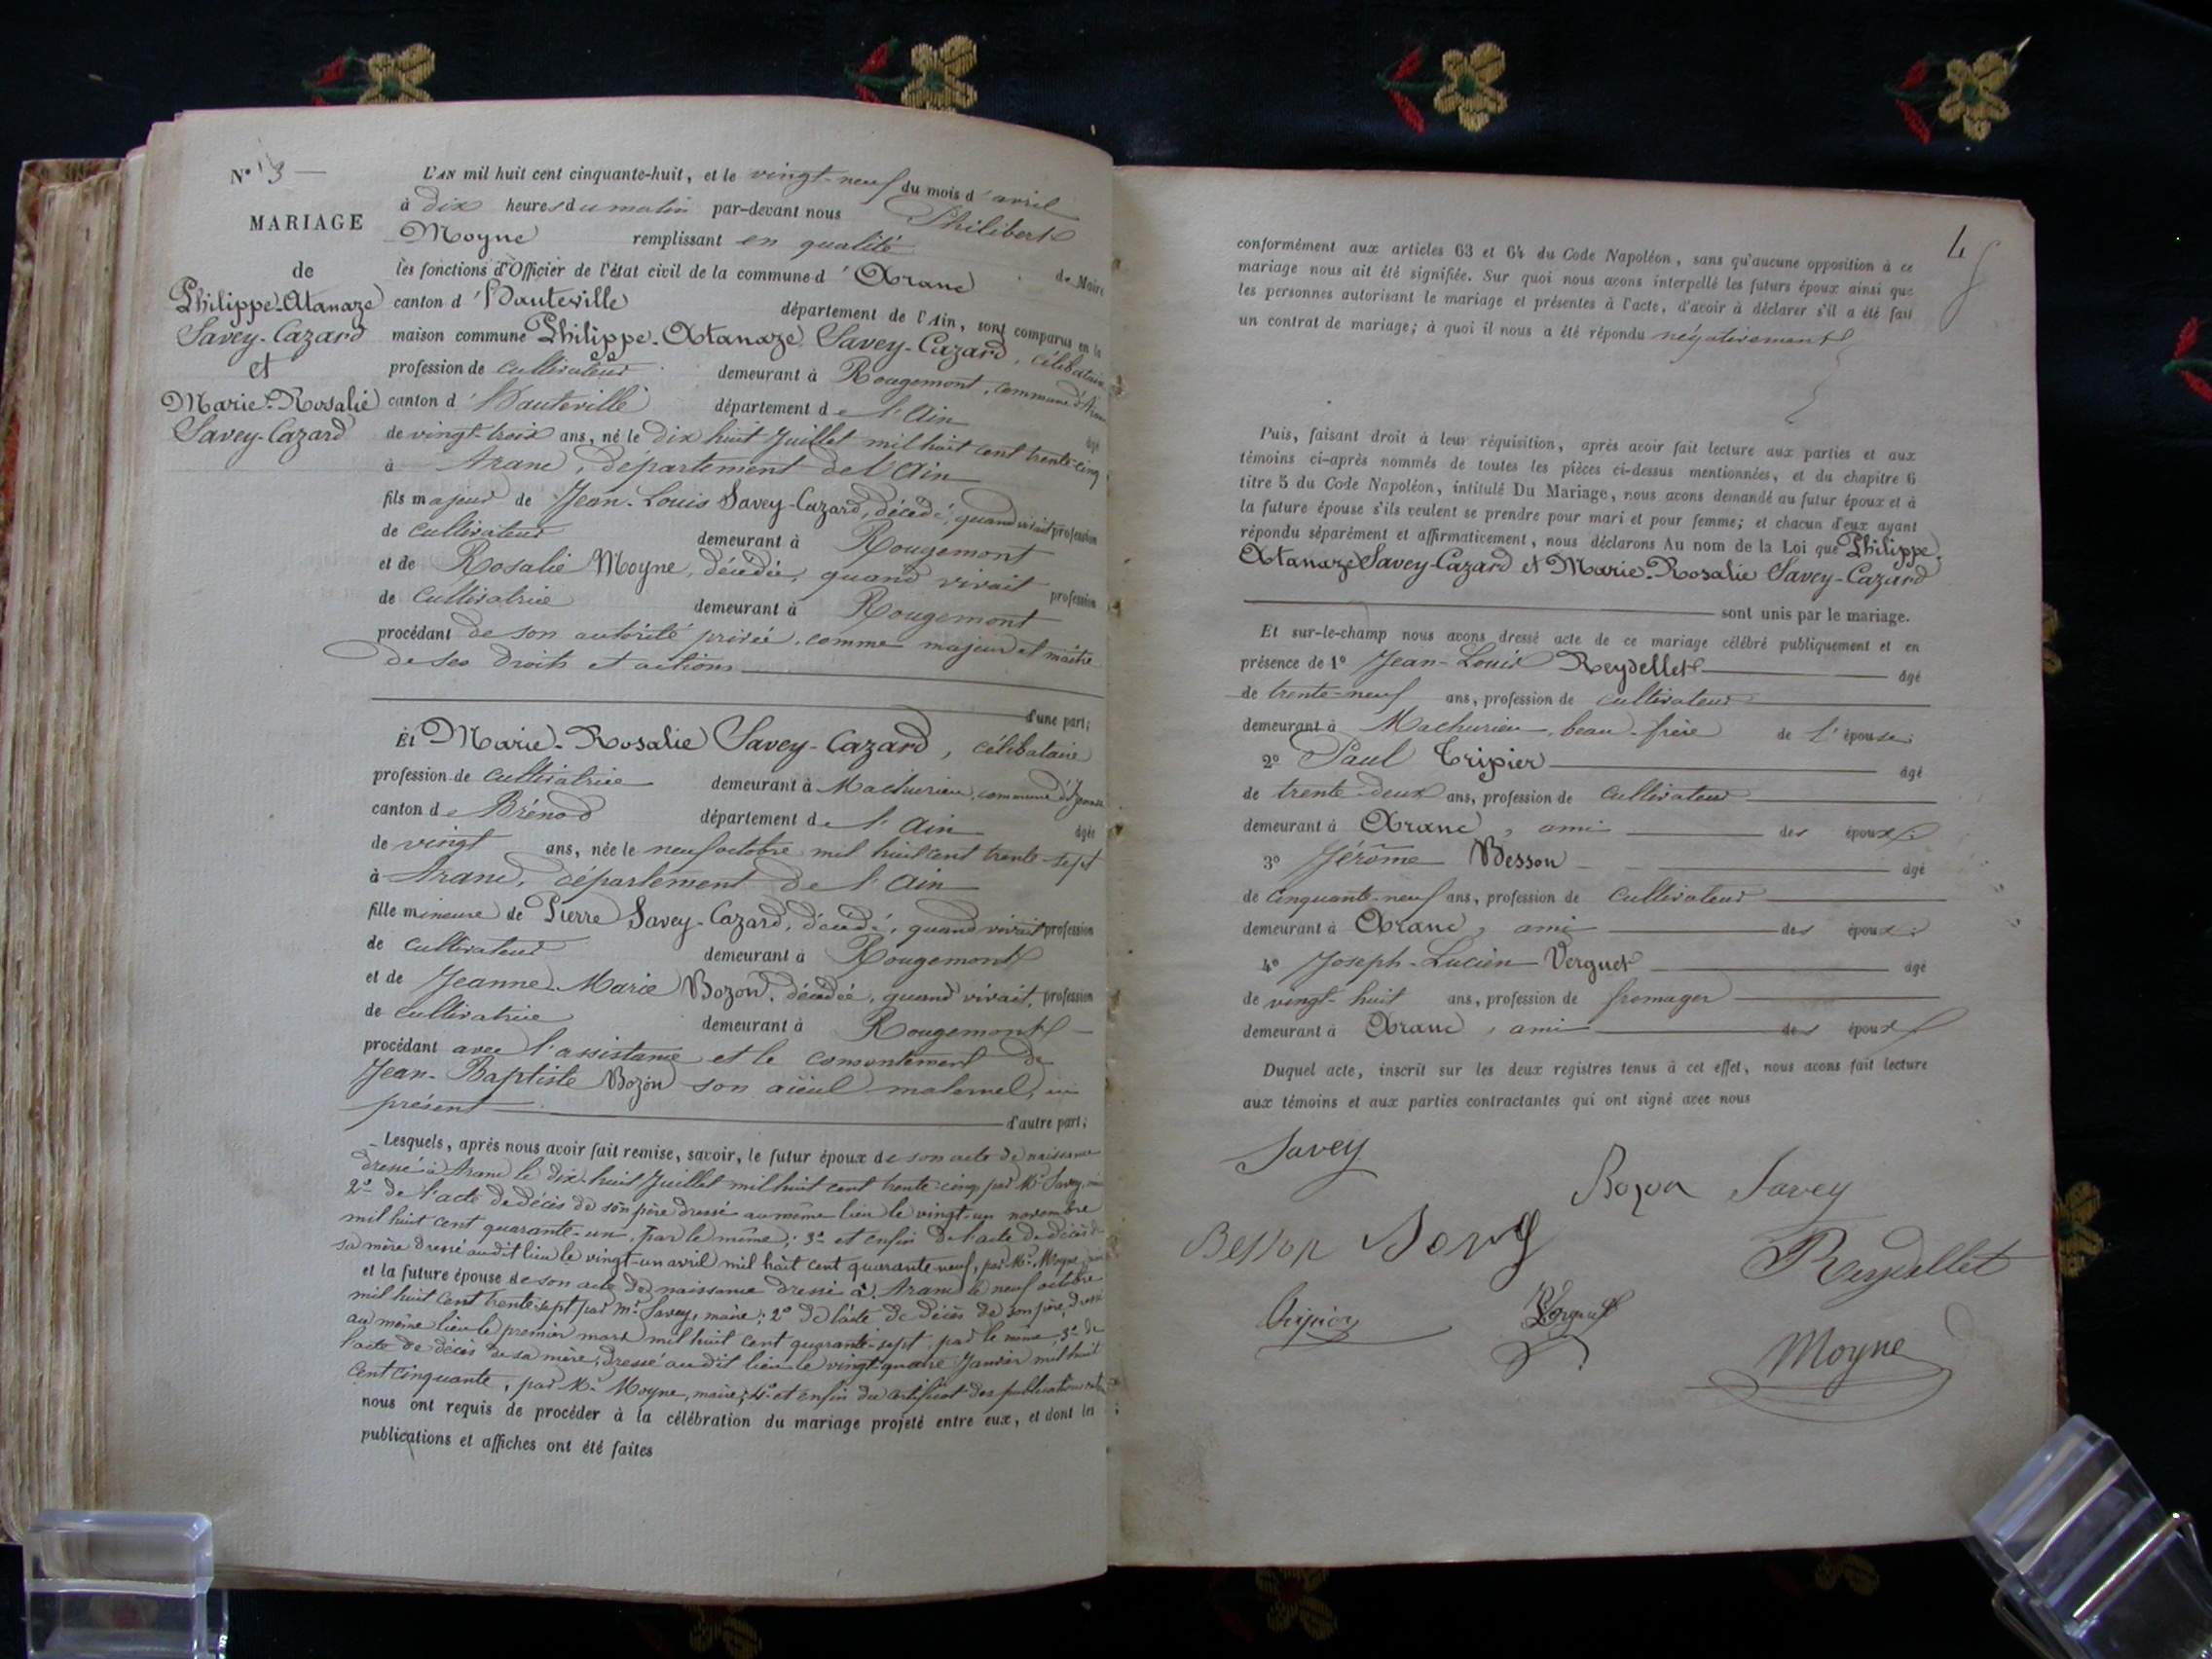 N° 3 —
MARIAGE
de
Philippe-Atanaze
Savey-Cazard
et
Marie-Rosalie
Savey-Cazard
L'AN mil huit cent cinquante-huit, et le vingt-neuf du mois d'avril
à dix heures du matin par-devant nous Philibert
Moyne remplissant en qualité de Maire
les fonctions d'Officier de l'état civil de la commune d'Aranc
canton d'Hauteville département de l'Ain, sont comparus en la
maison commune Philippe-Atanaze Savey-Cazard, célibataire
profession de cultivateur demeurant à Rougemont, commune d'Aranc
canton d'Hauteville département de l'Ain âgé
de vingt-trois ans, né le dix huit Juillet mil huit cent trente-cinq
à Aranc, département de l'Ain
fils majeur de Jean-Louis Savey-Cazard, décédé, quand vivait profession
de cultivateur demeurant à Rougemont
et de Rosalie Moyne, décédée, quand vivait profession
de cultivatrice demeurant à Rougemont
procédant de son autorité privée, comme majeur et maître
de ses droits et actions
d'une part;
Et Marie-Rosalie Savey-Cazard, célibataire
profession de cultivatrice demeurant à Machurieu, commune d'Izenave
canton de Brénod département de l'Ain âgée
de vingt ans, née le neuf octobre mil huit cent trente-sept
à Aranc, département de l'Ain
fille mineure de Pierre Savey-Cazard, décédé, quand vivait profession
de cultivateur demeurant à Rougemont
et de Jeanne-Marie Bozon, décédée, quand vivait, profession
de cultivatrice demeurant à Rougemont
procédant avec l'assistance et le consentement de
Jean-Baptiste Bozon son aïeul maternel, ici
présent
d'autre part;
Lesquels, après nous avoir fait remise, savoir, le futur époux de son acte de naissance
dressé à Aranc le dix huit Juillet mil huit cent trente-cinq par Mr Savey,
2° de l'acte de décès de son père dressé au même lieu le vingt-un novembre
mil huit cent quarante-un, par le même; 3° et enfin de l'acte de décès de
sa mère dressé audit lieu le vingt-un avril mil huit cent quarante neuf, par Mr Moyne,
et la future épouse de son acte de naissance dressé à Aranc le neuf octobre
mil huit cent trente-sept par Mr Savey, maire; 2° de l'acte de décès de son père, dressé
au même lieu le premier mars mil huit cent quarante-sept, par le même; 3° de
l'acte de décès de sa mère, dressé audit lieu le vingt-quatre Janvier mil huit
cent cinquante, par Mr Moyne, maire; 4° et enfin du certificat des publications
nous ont requis de procéder à la célébration du mariage projeté entre eux, et dont les
publications et affiches ont été faites
4
conformément aux articles 63 et 64 du Code Napoléon, sans qu'aucune opposition à ce
mariage nous ait été signifiée. Sur quoi nous avons interpellé les futurs époux ainsi que
les personnes autorisant le mariage et présentes à l'acte, d'avoir à déclarer s'il a été fait
un contrat de mariage; à quoi il nous a été répondu négativement
Puis, faisant droit à leur réquisition, après avoir fait lecture aux parties et aux
témoins ci-après nommés de toutes les pièces ci-dessus mentionnées, et du chapitre 6
titre 5 du Code Napoléon, intitulé Du Mariage, nous avons demandé au futur époux et à
la future épouse s'ils veulent se prendre pour mari et pour femme; et chacun d'eux ayant
répondu séparément et affirmativement, nous déclarons Au nom de la Loi que Philippe
Atanaze Savey-Cazard et Marie-Rosalie Savey-Cazard
sont unis par le mariage.
Et sur-le-champ nous avons dressé acte de ce mariage célébré publiquement et en
présence de 1° Jean-Louis Reydellet âgé
de trente-neuf ans, profession de cultivateur
demeurant à Machurieu, beau-frère de l'épouse;
2° Paul Tripier âgé
de trente deux ans, profession de cultivateur
demeurant à Aranc, ami des époux;
3° Jérôme Besson âgé
de cinquante-neuf ans, profession de cultivateur
demeurant à Aranc, ami des époux;
4° Joseph-Lucien Verguet âgé
de vingt-huit ans, profession de fromager
demeurant à Aranc, ami des époux
Duquel acte, inscrit sur les deux registres tenus à cet effet, nous avons fait lecture
aux témoins et aux parties contractantes qui ont signé avec nous
Savey
Bozon Savey
Besson
Reydellet
Tripier Verguet
Moyne